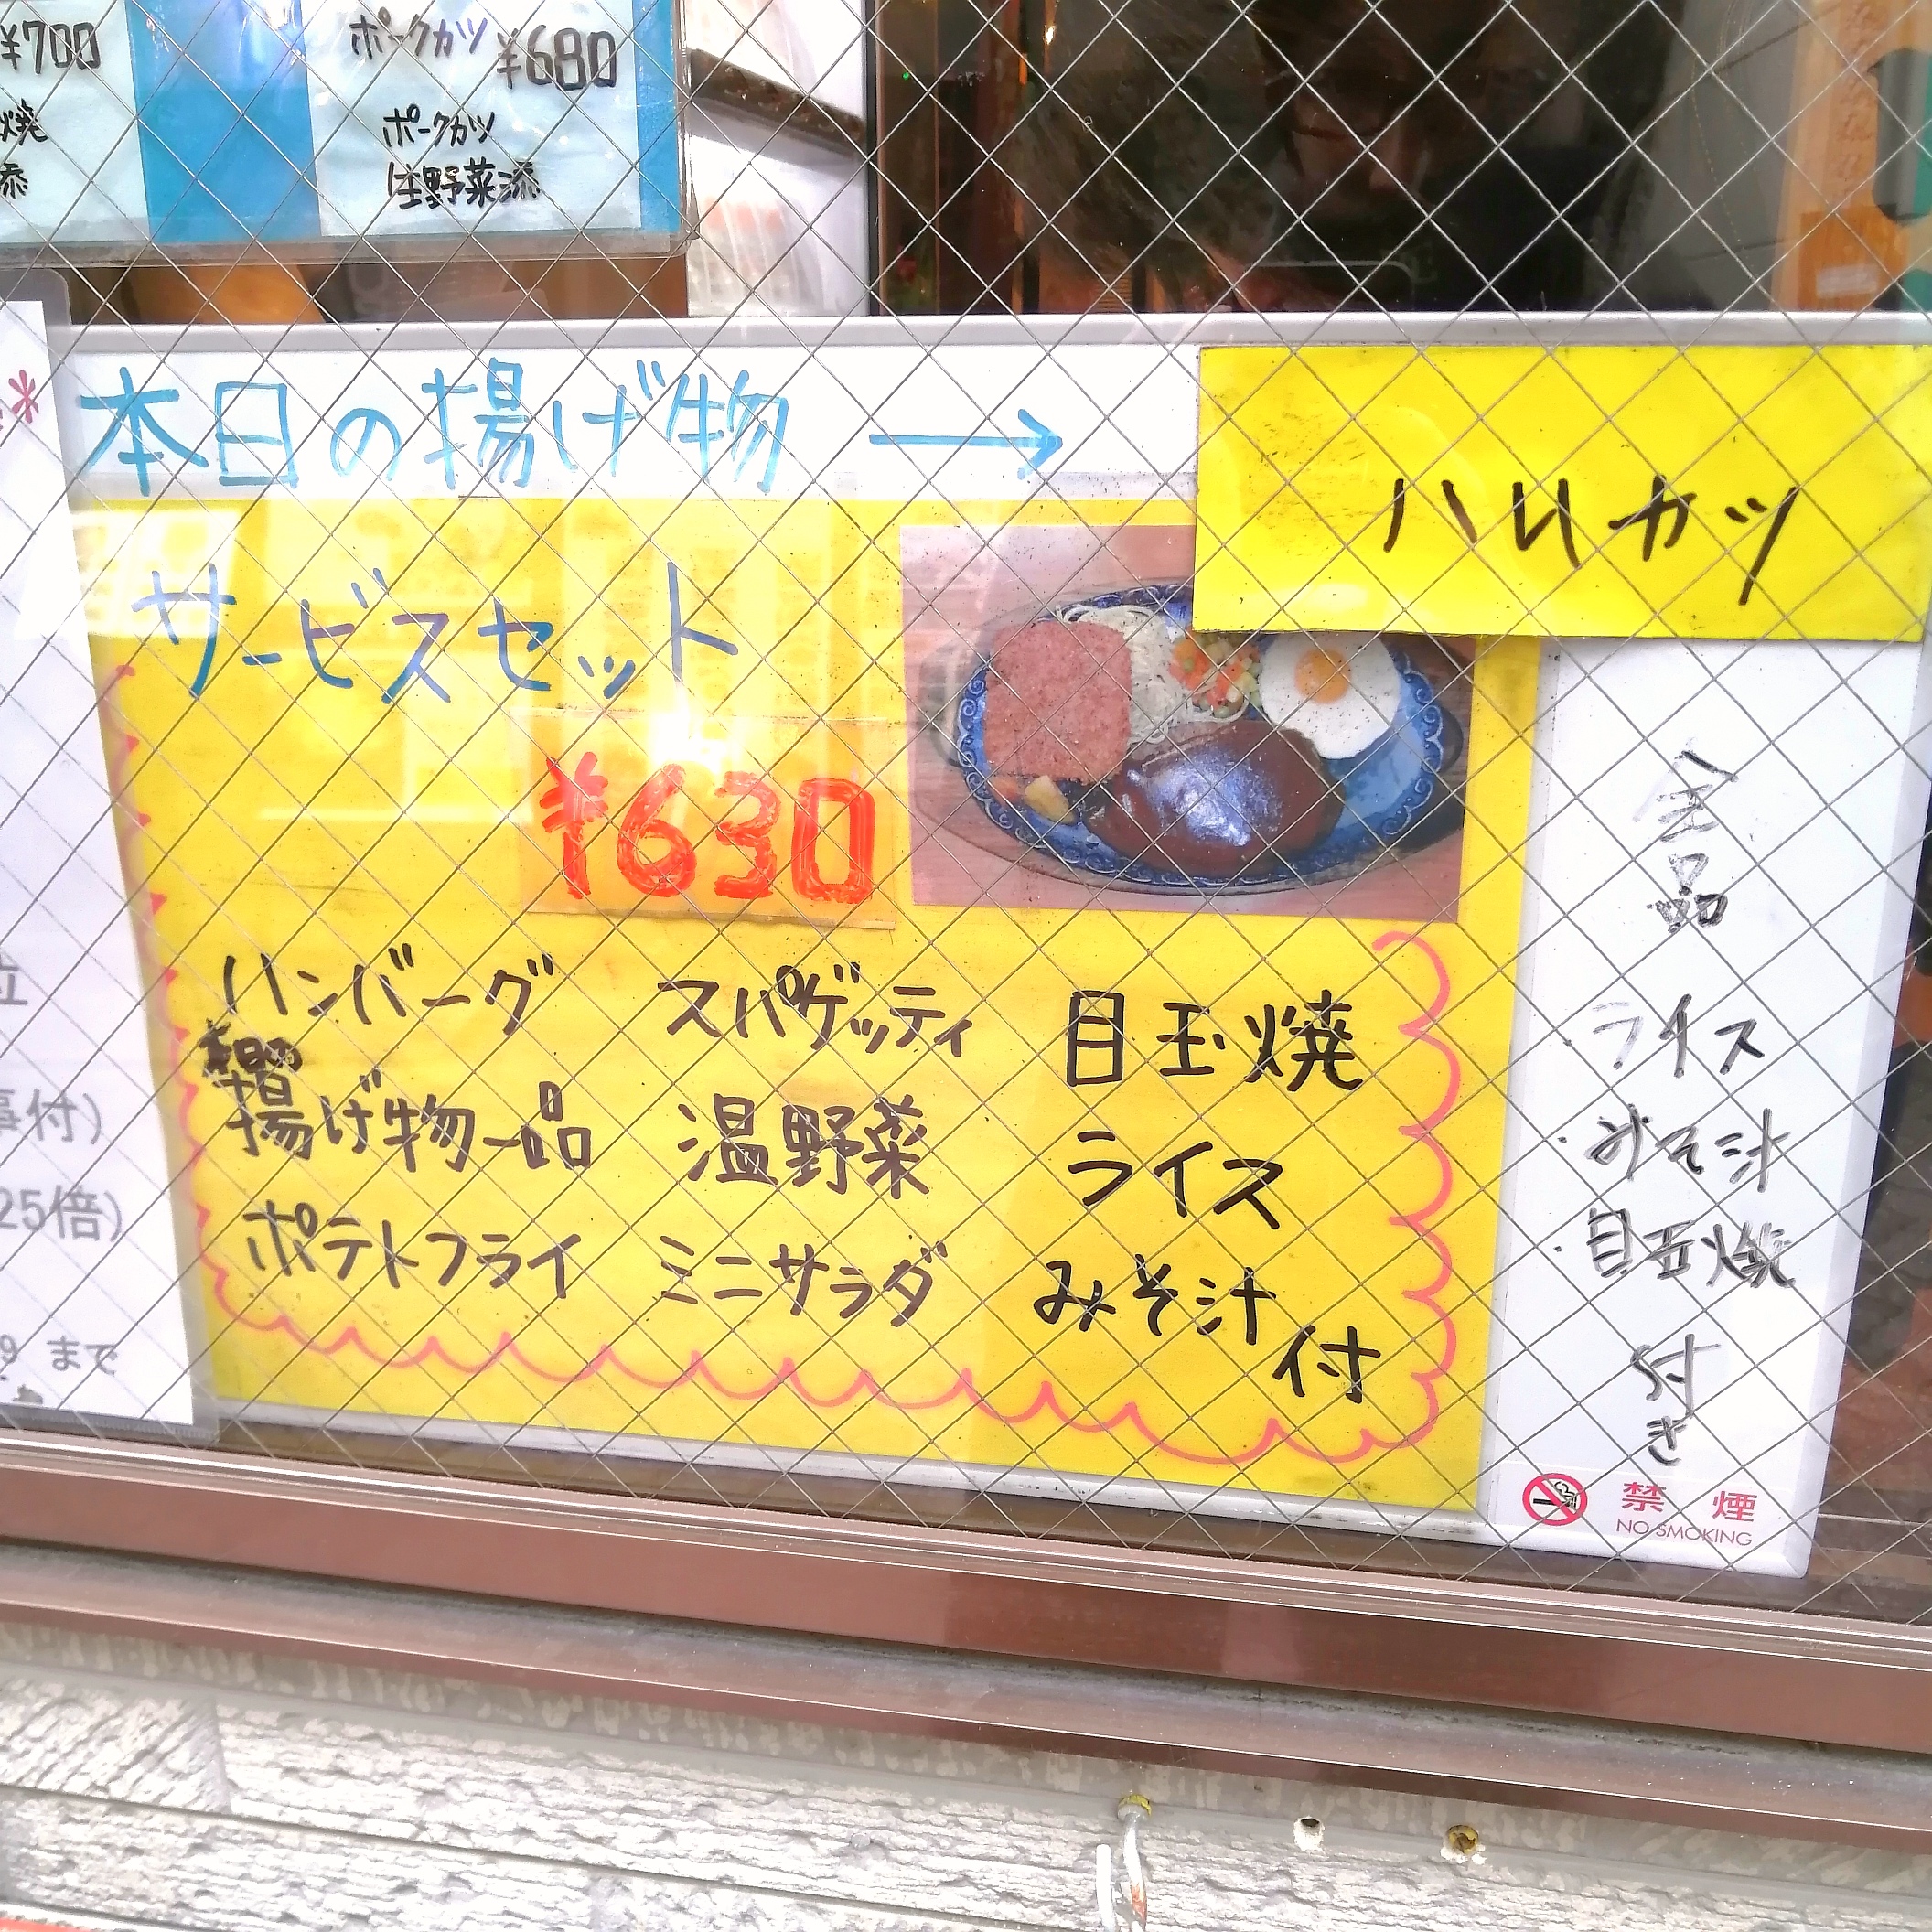 ¥700
焼
添
ポークカツ ¥680
ポークカツ
生野菜添
本日の揚げ物 →
ハムカツ
サービスセット
¥630
ハンバーグ スパゲッティ 目玉焼
揚げ物一品 温野菜 ライス
ポテトフライ ミニサラダ みそ汁
付
全品
ライス
・みそ汁
・目玉焼
付き
禁煙
NO SMOKING
位
事付)
25倍)
9 まで